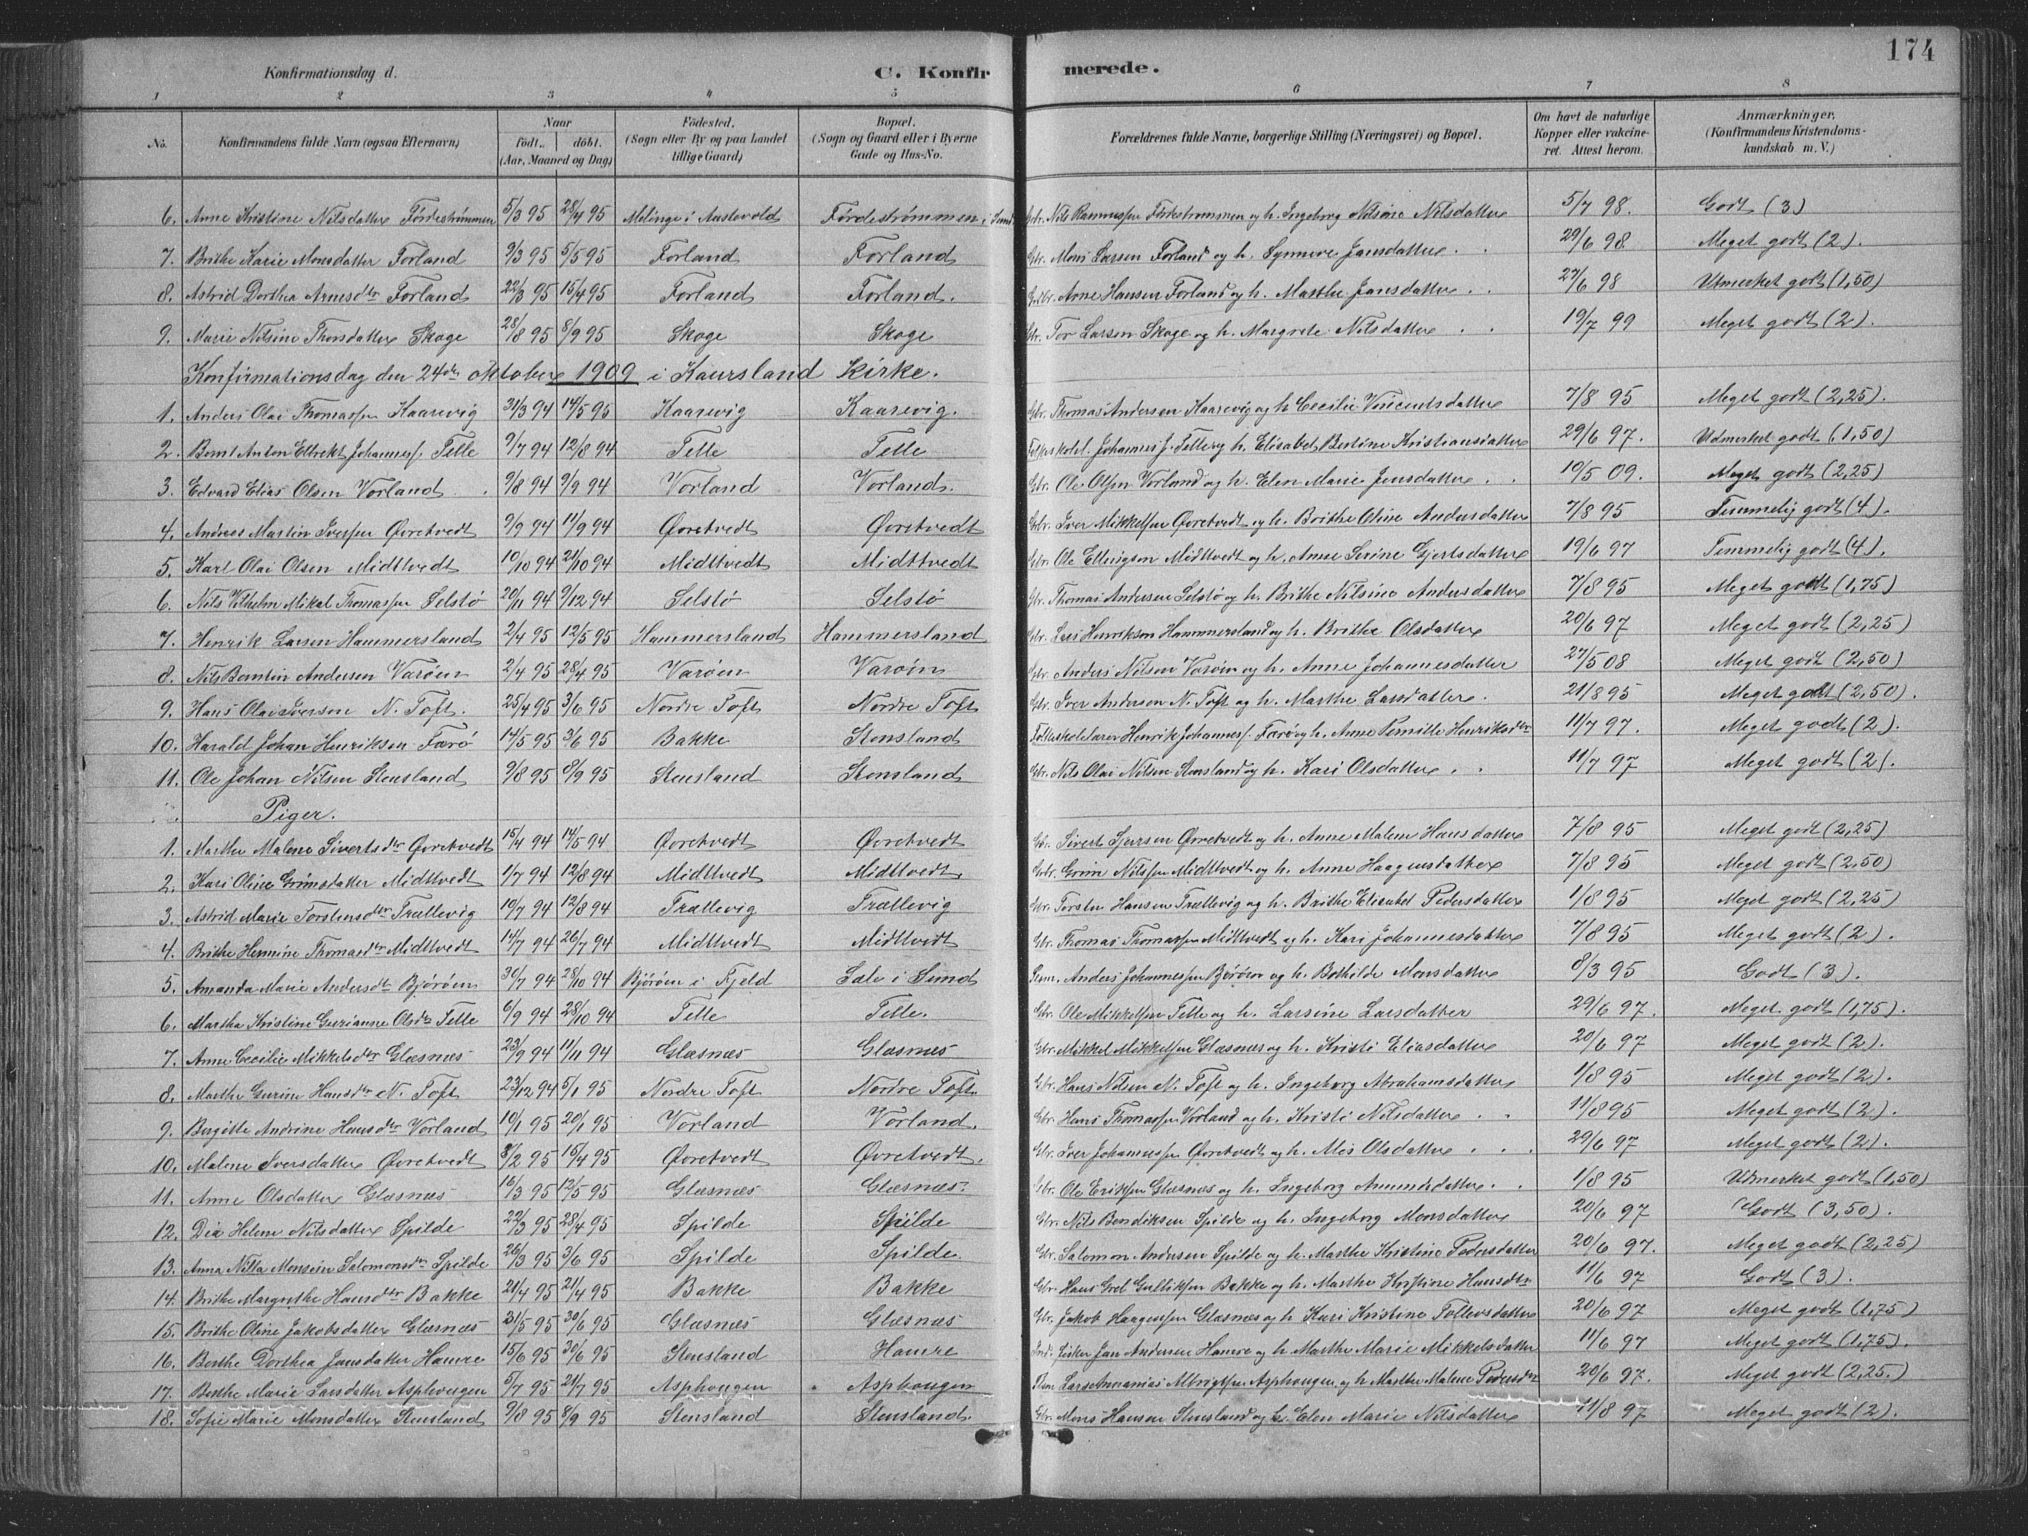 174
Konfirmationsdag d. C. Konfir merede.
1 2 3 4 5 6 7 8
No. Konfirmandens fulde Navn (ogsaa Efternavn) Naar født, døbt. (Aar, Maaned og Dag) Fødested. (Sogn eller By og paa Landet tillige Gaard) Bopæl. (Sogn og Gaard eller i Byerne Gade og Hus-No. Forældrenes fulde Navne, borgerlige Stilling (Næringsvei) og Bopæl. Om havt de naturlige Kopper eller vakcineret. Attest herom. Anmærkninger. (Konfirmandens Kristendomskundskab m. V.)
6. Anne Kristine Nilsdatter Førdestrømmen 5/3 95 28/4 95 Melinge i Austevold Førdestrømmen i Sund Gbr. Nils Rasmussen Førdestrømmen og h. Ingeborg Nilsine Nilsdatter 5/7 98. Godt (3)
7. Brithe Karie Monsdatter Forland 9/3 95 5/5 95 Forland Forland Gbr. Mons Larsen Forland og h. Synneve Jansdatter 29/6 98 Meget godt (2).
8. Astrid Dorthea Arnesdtr Forland 22/3 95 15/4 95 Forland Forland. Gbr. Arne Hansen Forland og h. Marthe Jansdatter 27/6 98 Utmerket godt (1,50)
9. Marie Nilsine Thorsdatter Skoge 28/8 95 8/9 95 Skoge Skoge Gbr. Tor Larsen Skoge og h. Margrete Nilsdatter 19/7 99 Meget godt (2).
Konfirmationsdag den 24de oktober 1909 i Kaursland Kirke.
1. Anders Olai Thomassen Kaarevig 31/3 94 14/5 95 Kaarevig Kaarevig. Gbr. Thomas Andersen Kaarevig og h. Cecilie Vincentsdatter 7/8 95 Meget godt (2,25).
2. Bernt Anton Eltrekt Johanness. Telle 9/7 94 12/8 94 Telle Telle Folkeskolel. Johannes J. Telle og h. Elisabet Bertine Kristiansdatter 29/6 97. Udmerket godt (1,50)
3. Edvard Elias Olsen Vorland 9/8 94 9/9 94 Vorland Vorland. Gbr. Ole Olsen Vorland og h. Elen Marie Jensdatter 19/5 09. Meget godt (2,25)
4. Andreas Martin Iversen Øvretvedt 9/9 94 11/9 94 Øvretvedt Øvretvedt Gbr. Iver Mikkelsen Øvretvedt og h. Brithe Oline Andersdatter 7/8 95 Temmelig godt (4).
5. Karl Olai Olsen Midttvedt 10/10 94 21/10 94 Midttvedt Midttvedt Gbr. Ole Ellingsen Midttvedt og h. Anne Serine Gjertsdatter 19/6 97 Temmelig godt (4).
6. Nils Vilhelm Mikal Thomassen Selstø 20/11 94 9/12 94 Selstø Selstø Gbr. Thomas Andersen Selstø og h. Brithe Nilsine Andersdatter 7/8 95 Meget godt (1,75)
7. Henrik Larsen Hammersland 2/4 95 12/5 95 Hammersland Hammersland Gbr. Lars Henriksen Hammersland og h. Brithe Olsdatter 20/6 97 Meget godt (2,25)
8. Nils Berntin Andersen Varøen 2/4 95 28/4 95 Varøen Varøen Gbr. Anders Nilsen Varøin og h. Anne Johannesdatter 27/5 08 Meget godt (2,50)
9. Hans Olai Iversen N. Toft. 25/4 95 3/6 95 Nordre Toft Nordre Toft Gbr. Iver Andersen N. Toft og h. Marthe Larsdatter. 21/8 95 Meget godt (2,50).
10. Harald Johan Henriksen Færø 14/5 95 3/6 95 Bakke Stensland Folkeskolelærer Henrik Johanness. Færø og h. Anne Pernille Henriksdtr 11/7 97. Meget godt (2).
11. Ole Johan Nilsen Stensland 9/8 95 8/9 95 Stensland Stensland Gbr. Nils Olai Nilsen Stensland og h. Kari Olsdatter 11/7 97 Meget godt (2).
Piger.
1. Marthe Malene Sivertsdtr Øvretvedt 15/4 94 14/5 94 Øvretvedt Øvretvedt Gbr. Sivert Sjursen Øvretvedt og h. Anne Malene Hansdatter 7/8 95 Meget godt (2,25)
2. Kari Oline Grimsdatter Midttvedt 1/7 94 12/8 94 Midttvedt Midttvedt. Gbr. Grim Nilssen Midttvedt og h. Anne Haagensdatter 7/8 95 Meget godt (2,50)
3. Astrid Marie Torstensdtr Trællevig 10/7 94 12/8 94 Trællevig Trællevig Gbr. Torsten Hansen Trællevig og h. Brithe Elisabet Pedersdatter 1/8 95 Meget godt (2,25)
4. Brithe Hermine Thomasdtr Midttvedt 14/7 94 26/7 94 Midttvedt Midttvedt Gbr. Thomas Thomassen Midttvedt og h. Kari Johannesdatter 7/8 95 Meget godt (2).
5. Amanda Marie Andersdtr Bjørøen 30/7 94 28/10 94 Bjørøen i Fjeld Sale i Sund Anders Johannessen Bjørøen og h. Bothilde Monsdatter 8/3 95 Godt (3).
6. Martha Kristine Gurianne Olsdtr Telle 6/9 94 28/10 94 Telle Telle. Gbr. Ole Mikkelsen Telle og h. Larsine Larsdatter 29/6 97. Meget godt (1,75).
7. Anne Cecilie Mikkelsdtr Glæsnæs 23/9 94 11/11 94 Glæsnæs Glæsnæs Gbr. Mikkel Mikkelsen Glæsnæs og h. Kristi Eliasdatter 20/6 97 Meget godt (2).
8. Marthe Gurine Hansdtr N. Toft 23/12 94 5/1 95 Nordre Toft Nordre Toft. Gbr. Hans Nilsen N. Toft og h. Ingeborg Abrahamsdatter 1/8 95 Meget godt (2).
9. Bergitte Andrine Hansdtr Vorland 10/1 95 20/1 95 Vorland Vorland. Gbr. Hans Thomassen Vorland og h. Kristi Nilsdatter 11/8 95 Meget godt (2).
10. Malene Iversdatter Øvretvedt 8/2 95 15/4 95 Øvretvedt Øvretvedt. Gbr. Iver Johannessen Øvretvedt og h. Olsdatter 29/6 97 Meget godt (2).
11. Anne Olsdatter Glæsnæs 16/3 95 12/5 95 Glæsnæs Glæsnæs. Gbr. Ole Eriksen Glæsnæs og h. Ingeborg Amundsdatter 1/8 95 Udmerket godt (1,50)
12. Dia Helene Nilsdatter Spilde 22/3 95 28/4 95 Spilde Spilde Gbr. Nils Bendiksen Spilde og h. Ingeborg Monsdatter 20/6 97 Godt (3,50).
13. Anna Nilla Monsine Salomonsdtr Spilde 26/3 95 3/6 95 Spilde Spilde Gbr. Salomon Andersen Spilde og h. Marthe Kristine Pedersdatter 20/6 97. Meget godt (2,25)
14. Brithe Margrethe Hansdtr Bakke 21/4 95 21/4 95 Bakke Bakke Gbr. Hans Gulliksen Bakke og h. Marthe Hansdtr 11/6 97 Godt (3).
15. Brithe Oline Jakobsdatter Glæsnæs 31/5 95 30/6 95 Glæsnæs Glæsnæs Gbr. Jakob Haagensen Glæsnæs og h. Kari Kristine Tollevsdatter 20/6 97 Meget godt (1,75)
16. Berthe Dorthea Jansdatter Hamre 15/6 95 30/6 95 Stensland Hamre Ind. Fisker Jan Andersen Hamre og h. Marthe Marie Mikkelsdatter 11/6 97 Meget godt (1,75).
17. Berthe Marie Larsdatter Asphougen 5/7 95 21/7 95 Asphougen Asphougen Lars Ananias Albrigtsen Asphougen og h. Marthe Malene Pedersdtr 20/6 97. Meget godt (2,25.)
18. Sofie Marie Monsdatter Stensland 9/8 95 8/9 95 Stensland Stensland. Gbr. Mons Hansen Stensland og h. Elen Marie Nilsdatter 11/8 97 Meget godt (2).